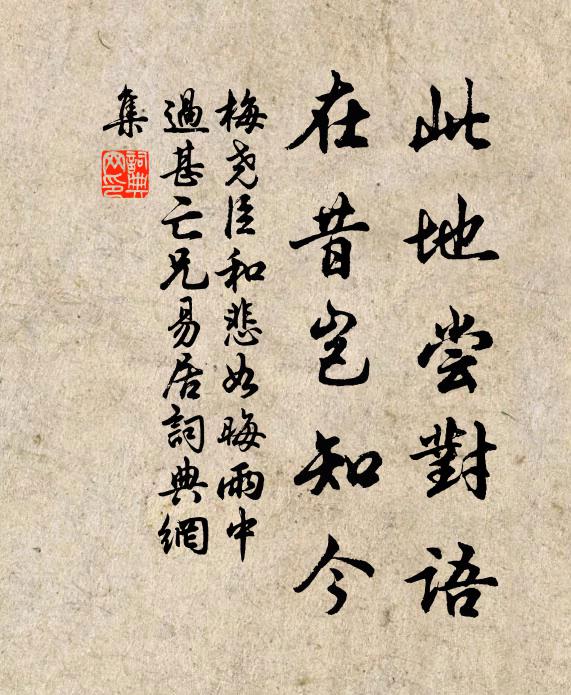 此地尝對語
在昔豈知今
梅尧臣和悲如晦雨中
過甚亡兄易居詞典網
集
詞典網印